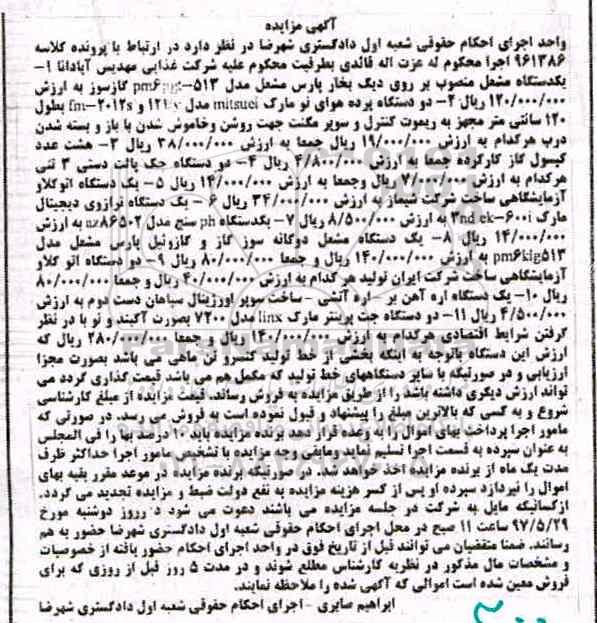 آگهی مزایده
واحد اجرای احکام حقوقی شعبه اول دادگستری شهرضا در نظر دارد در ارتباط با پرونده کلاسه
۹۶۱۳۸۶ اجرا محکوم له عزت اله قائدی بطرفیت محکوم علیه شرکت غذایی مهدیس آپادانا ۱-
یکدستگاه مشعل منصوب بر روی دیگ بخار پارس مشعل مدل ۵۱۳- گازسوز به ارزش
۱۲۰/۰۰۰/۰۰۰ ریال ۲- دو دستگاه پرده هوای نو مارک mitsuei مدل و fm-۲۰۱۲s بطول
۱۲۰ سانتی متر مجهز به ریموت کنترل و سوپر مگنت جهت روشن وخاموش شدن با باز و بسته شدن
درب هرکدام به ارزش ۱۹/۰۰۰/۰۰۰ ریال جمعا به ارزش ۳۸/۰۰۰/۰۰۰ ریال ۳- هشت عدد
کپسول گاز کارکرده جمعا به ارزش ۴/۸۰۰/۰۰۰ ریال ۴- دو دستگاه جک پالت دستی ۳ تنی
هرکدام به ارزش ۷/۰۰۰/۰۰۰ ریال وجمعا به ارزش ۱۴/۰۰۰/۰۰۰ ریال ۵- یک دستگاه اتوکلاو
آزمایشگاهی ساخت شرکت شیماز به ارزش ۳۴/۰۰۰/۰۰۰ ریال ۶- یک دستگاه ترازوی دیجیتال
مارک ek-۶۰۰i به ارزش ۸/۵۰۰/۰۰۰ ریال ۷- یکدستگاه ph سنج مدل az۸۶۵۰۲ به ارزش
۱۴/۰۰۰/۰۰۰ ریال ۸- یک دستگاه مشعل دوگانه سوز گاز و گازوئیل پارس مشعل مدل
pm۶klg۵۱۳ به ارزش ۱۴۰/۰۰۰/۰۰۰ ریال و جمعا ۸۰/۰۰۰/۰۰۰ ریال ۹- دو دستگاه اتو کلاو
آزمایشگاهی ساخت شرکت ایران تولید هر کدام به ارزش ۴۰/۰۰۰/۰۰۰ ریال و جمعا ۸۰/۰۰۰/۰۰۰
ریال ۱۰- یک دستگاه اره آهن بر -اره آتشی -ساخت سوپر اوورژینال سپاهان دست دوم به ارزش
۴/۵۰۰/۰۰۰ ریال ۱۱- دو دستگاه جت پرینتر مارک linx مدل ۷۲۰۰ بصورت آکبند و نو با در نظر
گرفتن شرایط اقتصادی هرکدام به ارزش ۱۴۰/۰۰۰/۰۰۰ ریال و جمعا ۲۸۰/۰۰۰/۰۰۰ ریال که
ارزش این دستگاه باتوجه به اینکه بخشی از خط تولید کنسرو تن ماهی می باشد بصورت مجزا
ارزیابی و در صورتیکه با سایر دستگاههای خط تولید که مکمل هم می باشد قیمت گذاری گردد می
تواند ارزش دیگری داشته باشد را از طریق مزایده به فروش رساند. قیمت مزایده از مبلغ کارشناسی
شروع و به کسی که بالاترین مبلغ را پیشنهاد و قبول نموده است به فروش می رسد. در صورتی که
مامور اجرا پرداخت بهای اموال را به وعده قرار دهد برنده مزایده باید ۱۰ درصد بها را فی المجلس
به عنوان سپرده به قسمت اجرا تسلیم نماید ومابقی وجه مزایده با تشخیص مامور اجرا حداکثر ظرف
مدت یک ماه از برنده مزایده اخذ خواهد شد. در صورتیکه برنده مزایده در موعد مقرر بقیه بهای
اموال را نپردازد سپرده او پس از کسر هزینه مزایده به نفع دولت ضبط و مزایده تجدید می گردد.
ازکسانیکه مایل به شرکت در جلسه مزایده می باشند دعوت می شود در روز دوشنبه مورخ
۹۷/۵/۲۹ ساعت ۱۱ صبح در محل اجرای احکام حقوقی شعبه اول دادگستری شهرضا حضور به هم
رسانند. ضمنا متقضیان می توانند قبل از تاریخ فوق در واحد اجرای احکام حضور یافته از خصوصیات
و مشخصات مال مذکور در نظریه کارشناس مطلع شوند و در مدت ۵ روز قبل از روزی که برای
فروش معین شده است اموالی که آگهی شده را ملاحظه نمایند.
ابراهیم صابری - اجرای احکام حقوقی شعبه اول دادگستری شهرضا